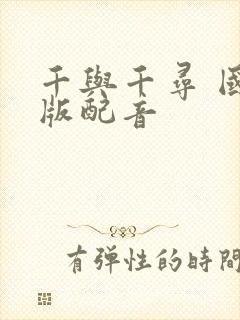 千與千尋 國
版配音
有弹性的時間